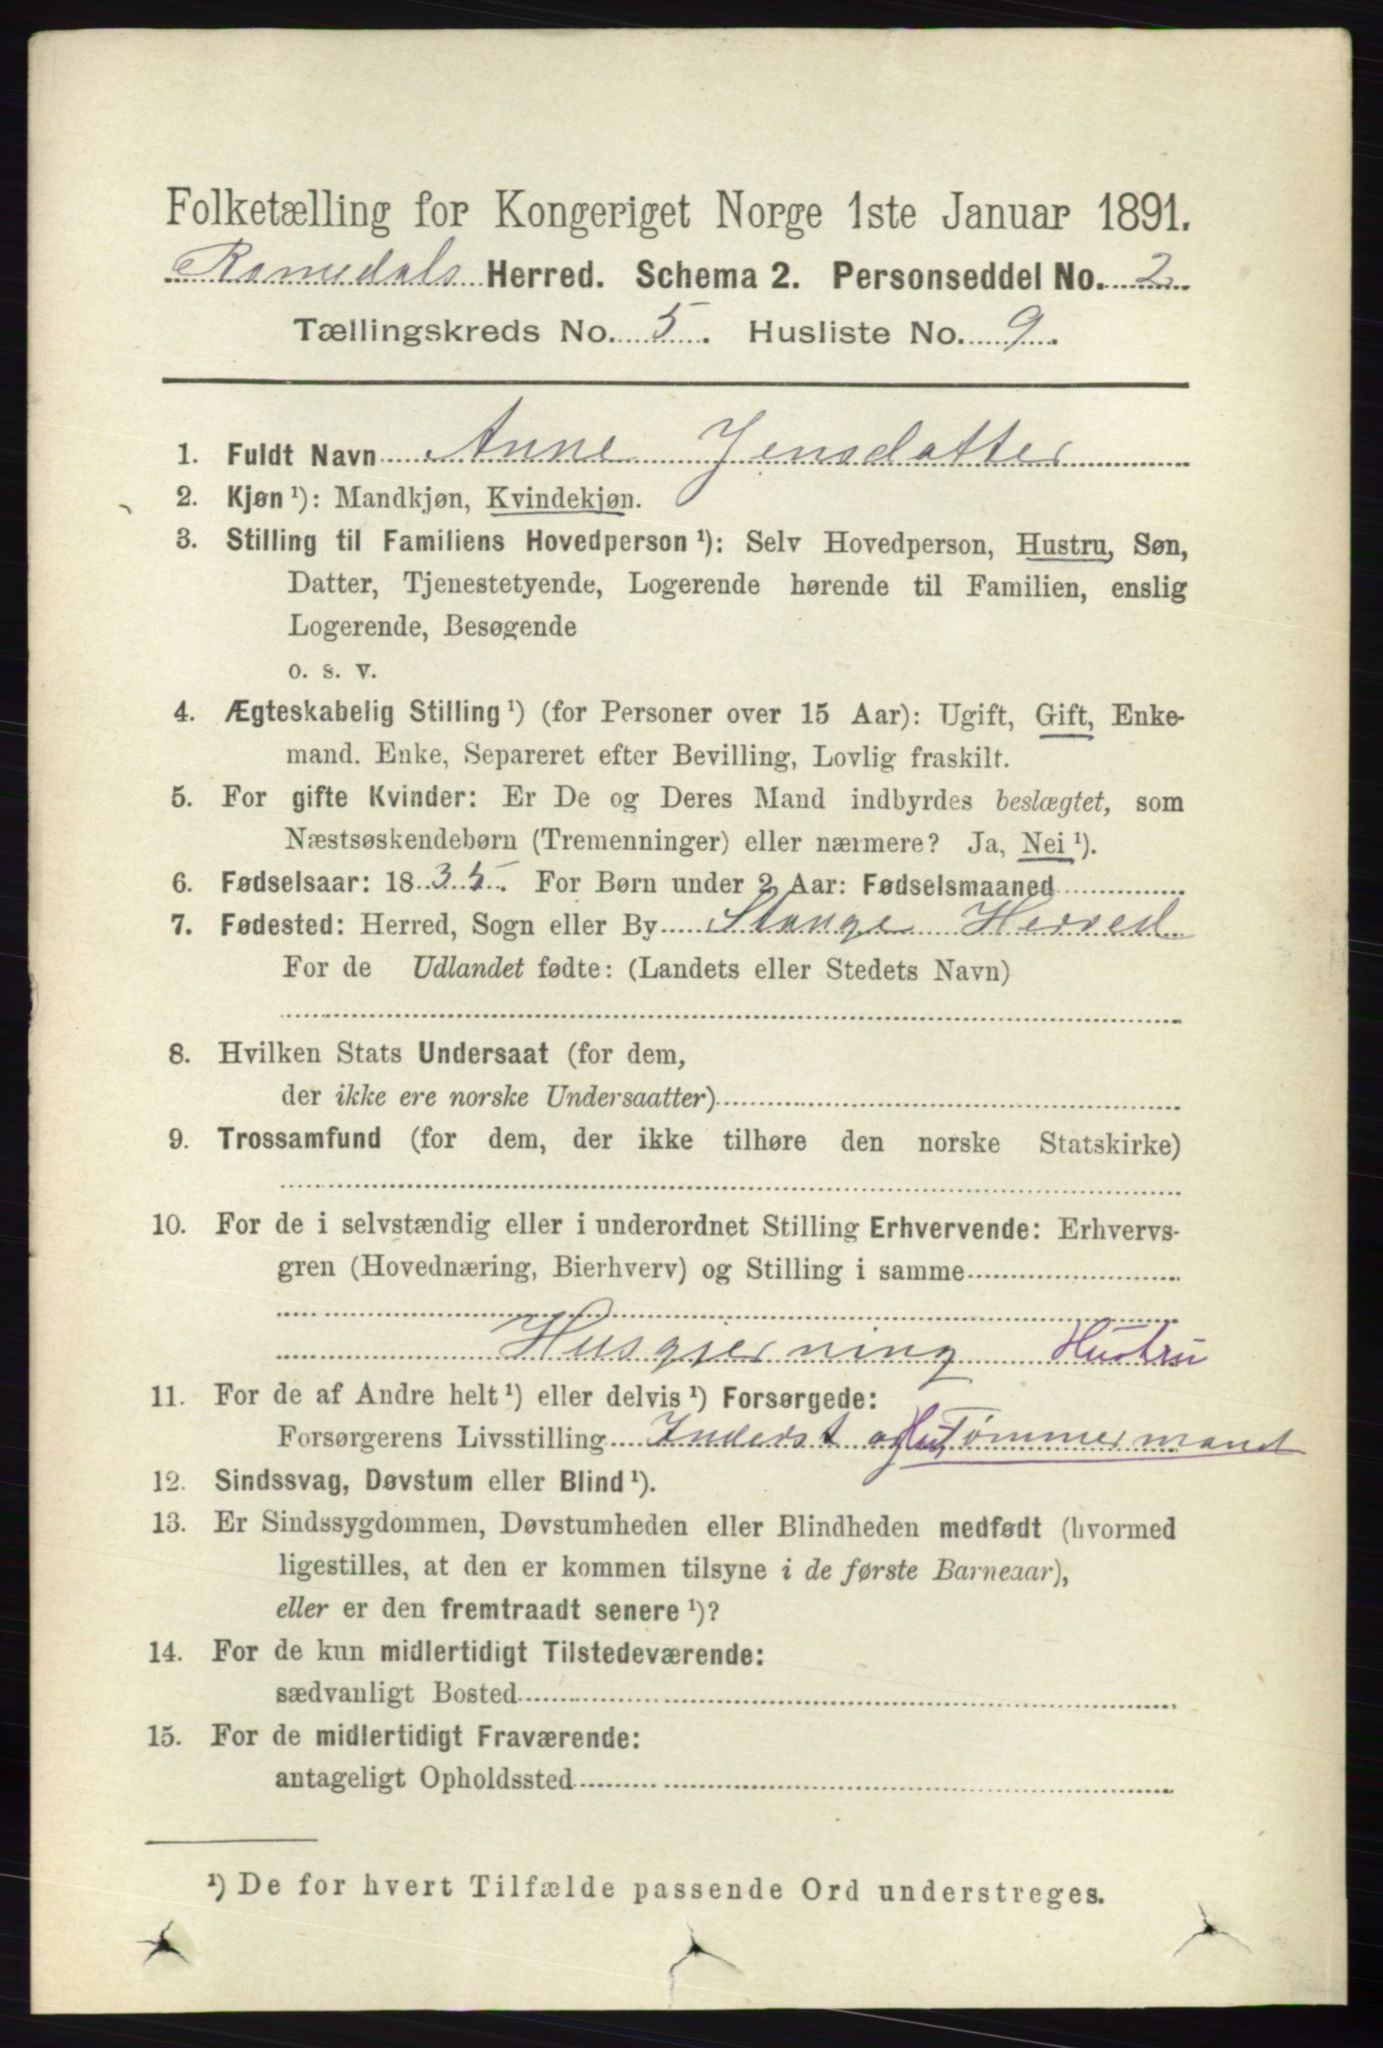 Folketælling for Kongeriget Norge 1ste Januar 1891.
Romedals Herred. Schema 2. Personseddel No. 2.
Tællingskreds No. 5. Husliste No. 9.
1. Fuldt Navn Anne Jensdatter
2. Kjøn ¹): Mandkjøn, Kvindekjøn.
3. Stilling til Familiens Hovedperson ¹): Selv Hovedperson, Hustru, Søn,
Datter, Tjenestetyende, Logerende hørende til Familien, enslig
Logerende, Besøgende
o. s. v.
4. Ægteskabelig Stilling ¹) (for Personer over 15 Aar): Ugift, Gift, Enke-
mand. Enke, Separeret efter Bevilling, Lovlig fraskilt.
5. For gifte Kvinder: Er De og Deres Mand indbyrdes beslægtet, som
Næstsøskendebørn (Tremenninger) eller nærmere? Ja, Nei ¹).
6. Fødselsaar: 1835. For Børn under 2 Aar: Fødselsmaaned
7. Fødested: Herred, Sogn eller By Stange Herred
For de Udlandet fødte: (Landets eller Stedets Navn)
8. Hvilken Stats Undersaat (for dem,
der ikke ere norske Undersaatter)
9. Trossamfund (for dem, der ikke tilhøre den norske Statskirke)
10. For de i selvstændig eller i underordnet Stilling Erhvervende: Erhvervs-
gren (Hovednæring, Bierhverv) og Stilling i samme
Husgjerning Hustru
11. For de af Andre helt ¹) eller delvis ¹) Forsørgede:
Forsørgerens Livsstilling Inderst og Tømmermand
12. Sindssvag, Døvstum eller Blind ¹).
13. Er Sindssygdommen, Døvstumheden eller Blindheden medfødt (hvormed
ligestilles, at den er kommen tilsyne i de første Barneaar),
eller er den fremtraadt senere ¹)?
14. For de kun midlertidigt Tilstedeværende:
sædvanligt Bosted
15. For de midlertidigt Fraværende:
antageligt Opholdssted
¹) De for hvert Tilfælde passende Ord understreges.